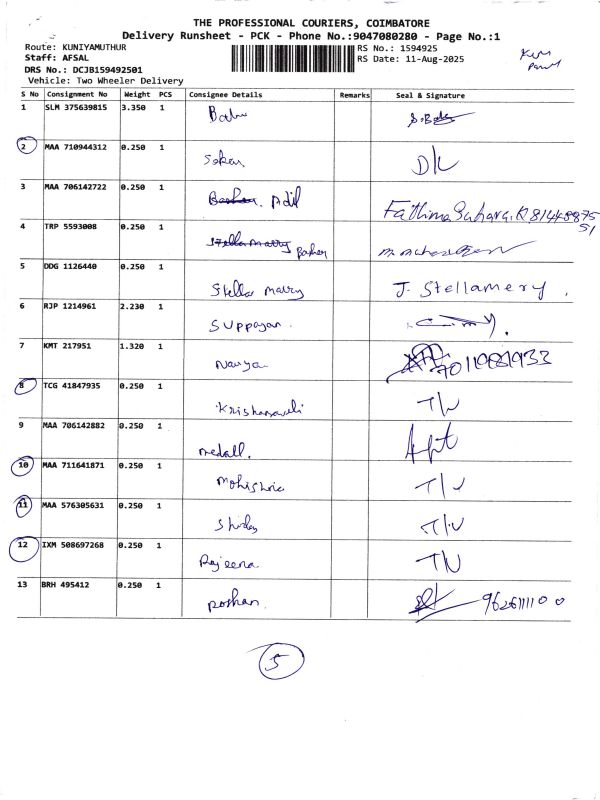 THE PROFESSIONAL COURIERS, COIMBATORE
Delivery Runsheet - PCK - Phone No.:9047080280 - Page No.:1
Route: KUNIYAMUTHUR
Staff: AFSAL
DRS No.: DCJB159492501
Vehicle: Two Wheeler Delivery
RS No.: 1594925
RS Date: 11-Aug-2025
S No Consignment No Weight PCS Consignee Details Remarks Seal & Signature
1 SLM 375639815 3.350 1 Babu
2 MAA 710944312 0.250 1 D/L
3 MAA 706142722 0.250 1 Adil Fathima Suhara.R 8144887551
4 TRP 5593008 0.250 1 Stella marry
5 DDG 1126440 0.250 1 Stella marry J. Stellamery.
6 RJP 1214961 2.230 1 Suppayan.
7 KMT 217951 1.320 1 Navya 7011981933
8 TCG 41847935 0.250 1
9 MAA 706142882 0.250 1 medall.
10 MAA 711641871 0.250 1
11 MAA 576305631 0.250 1
12 IXM 508697268 0.250 1 Rajeena
13 BRH 495412 0.250 1 Roshan. 9626111100
5